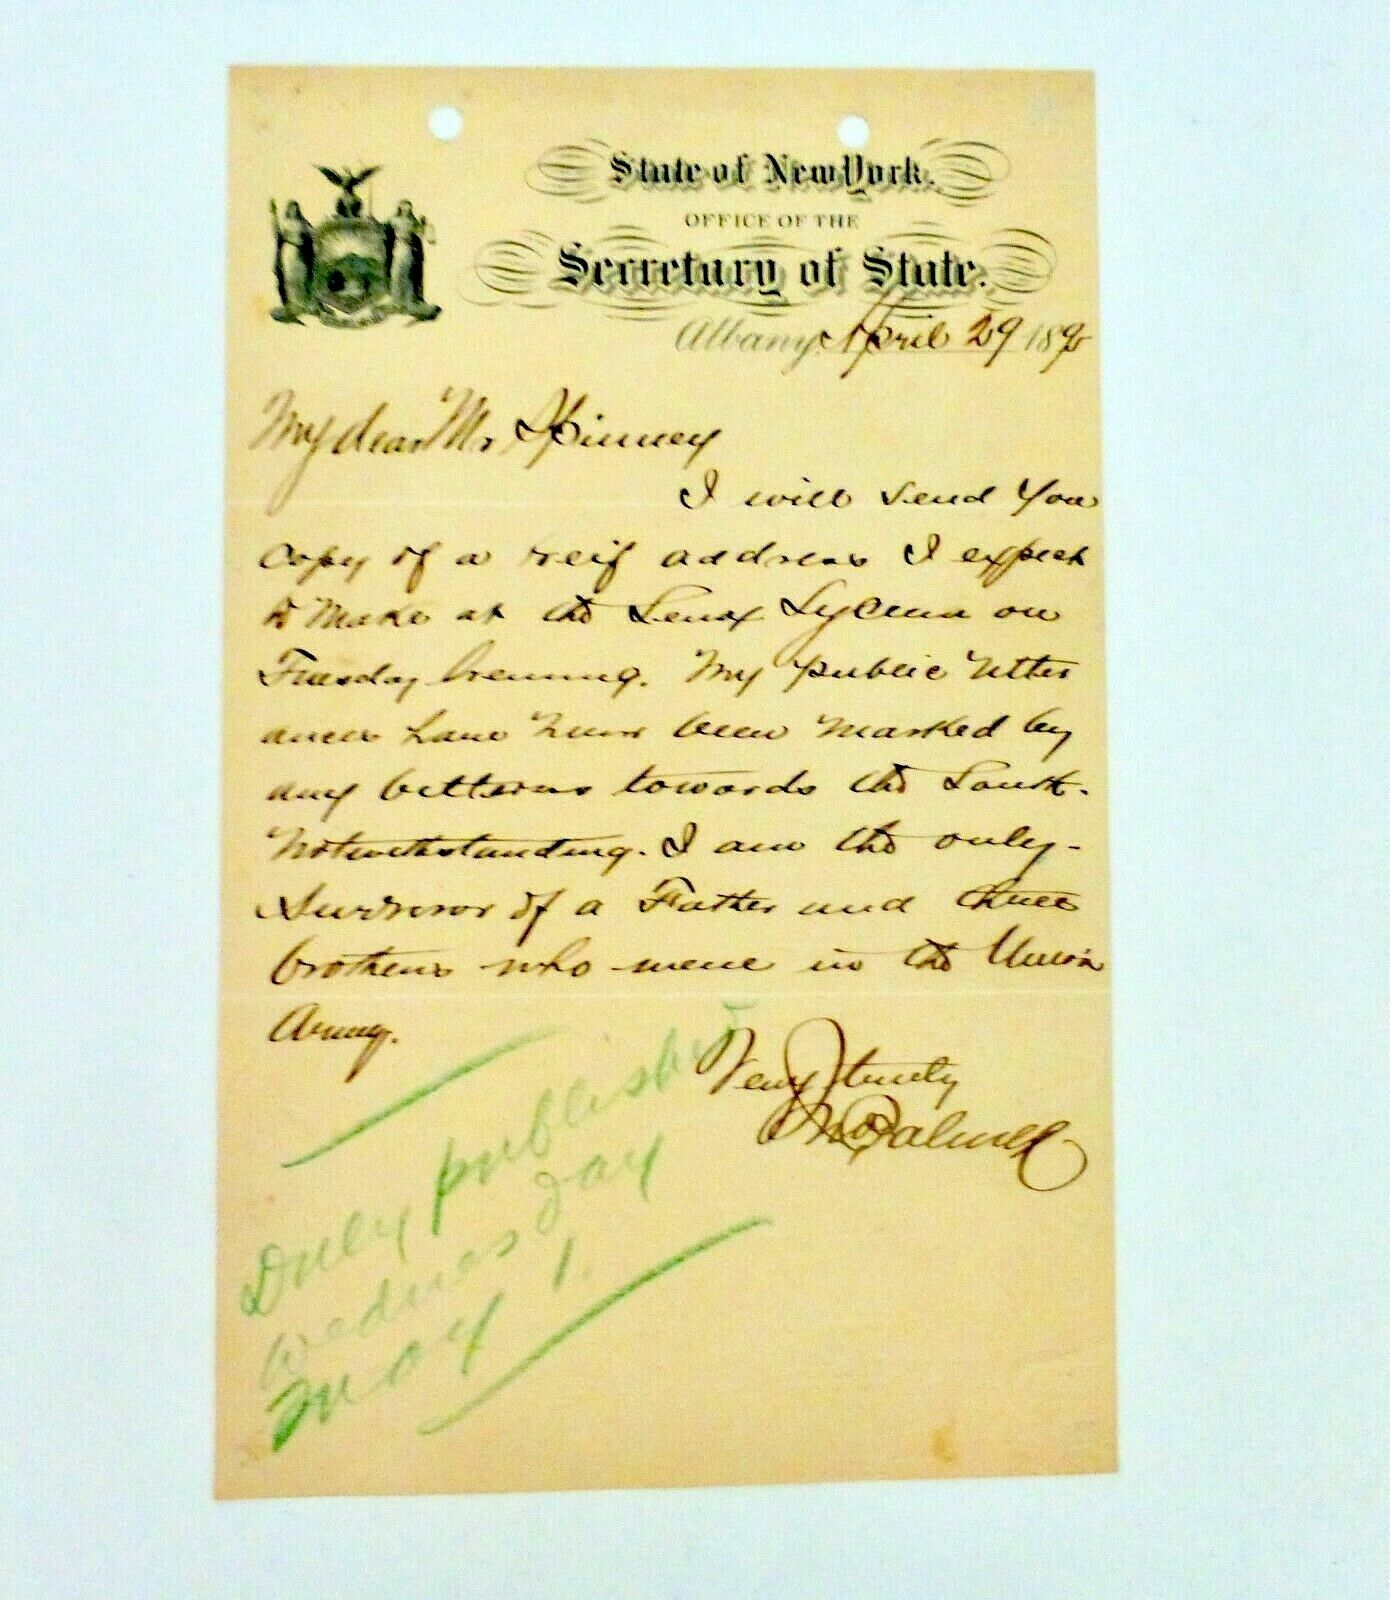 State of New York.
OFFICE OF THE
Secretary of State.
Albany, April 29 189
My dear Mr
I will send You
Copy of a breif address I expect
to make at the Lenox Lyceum on
Tuesday Evening. My public Utter
ances have never been marked by
any bitterness towards the South.
Notwithstanding. I am the only-
Survivor of a Father and three
brothers who were in the Union
Army.
Very truly
Palmer
Duly published
Wednesday
May 1.